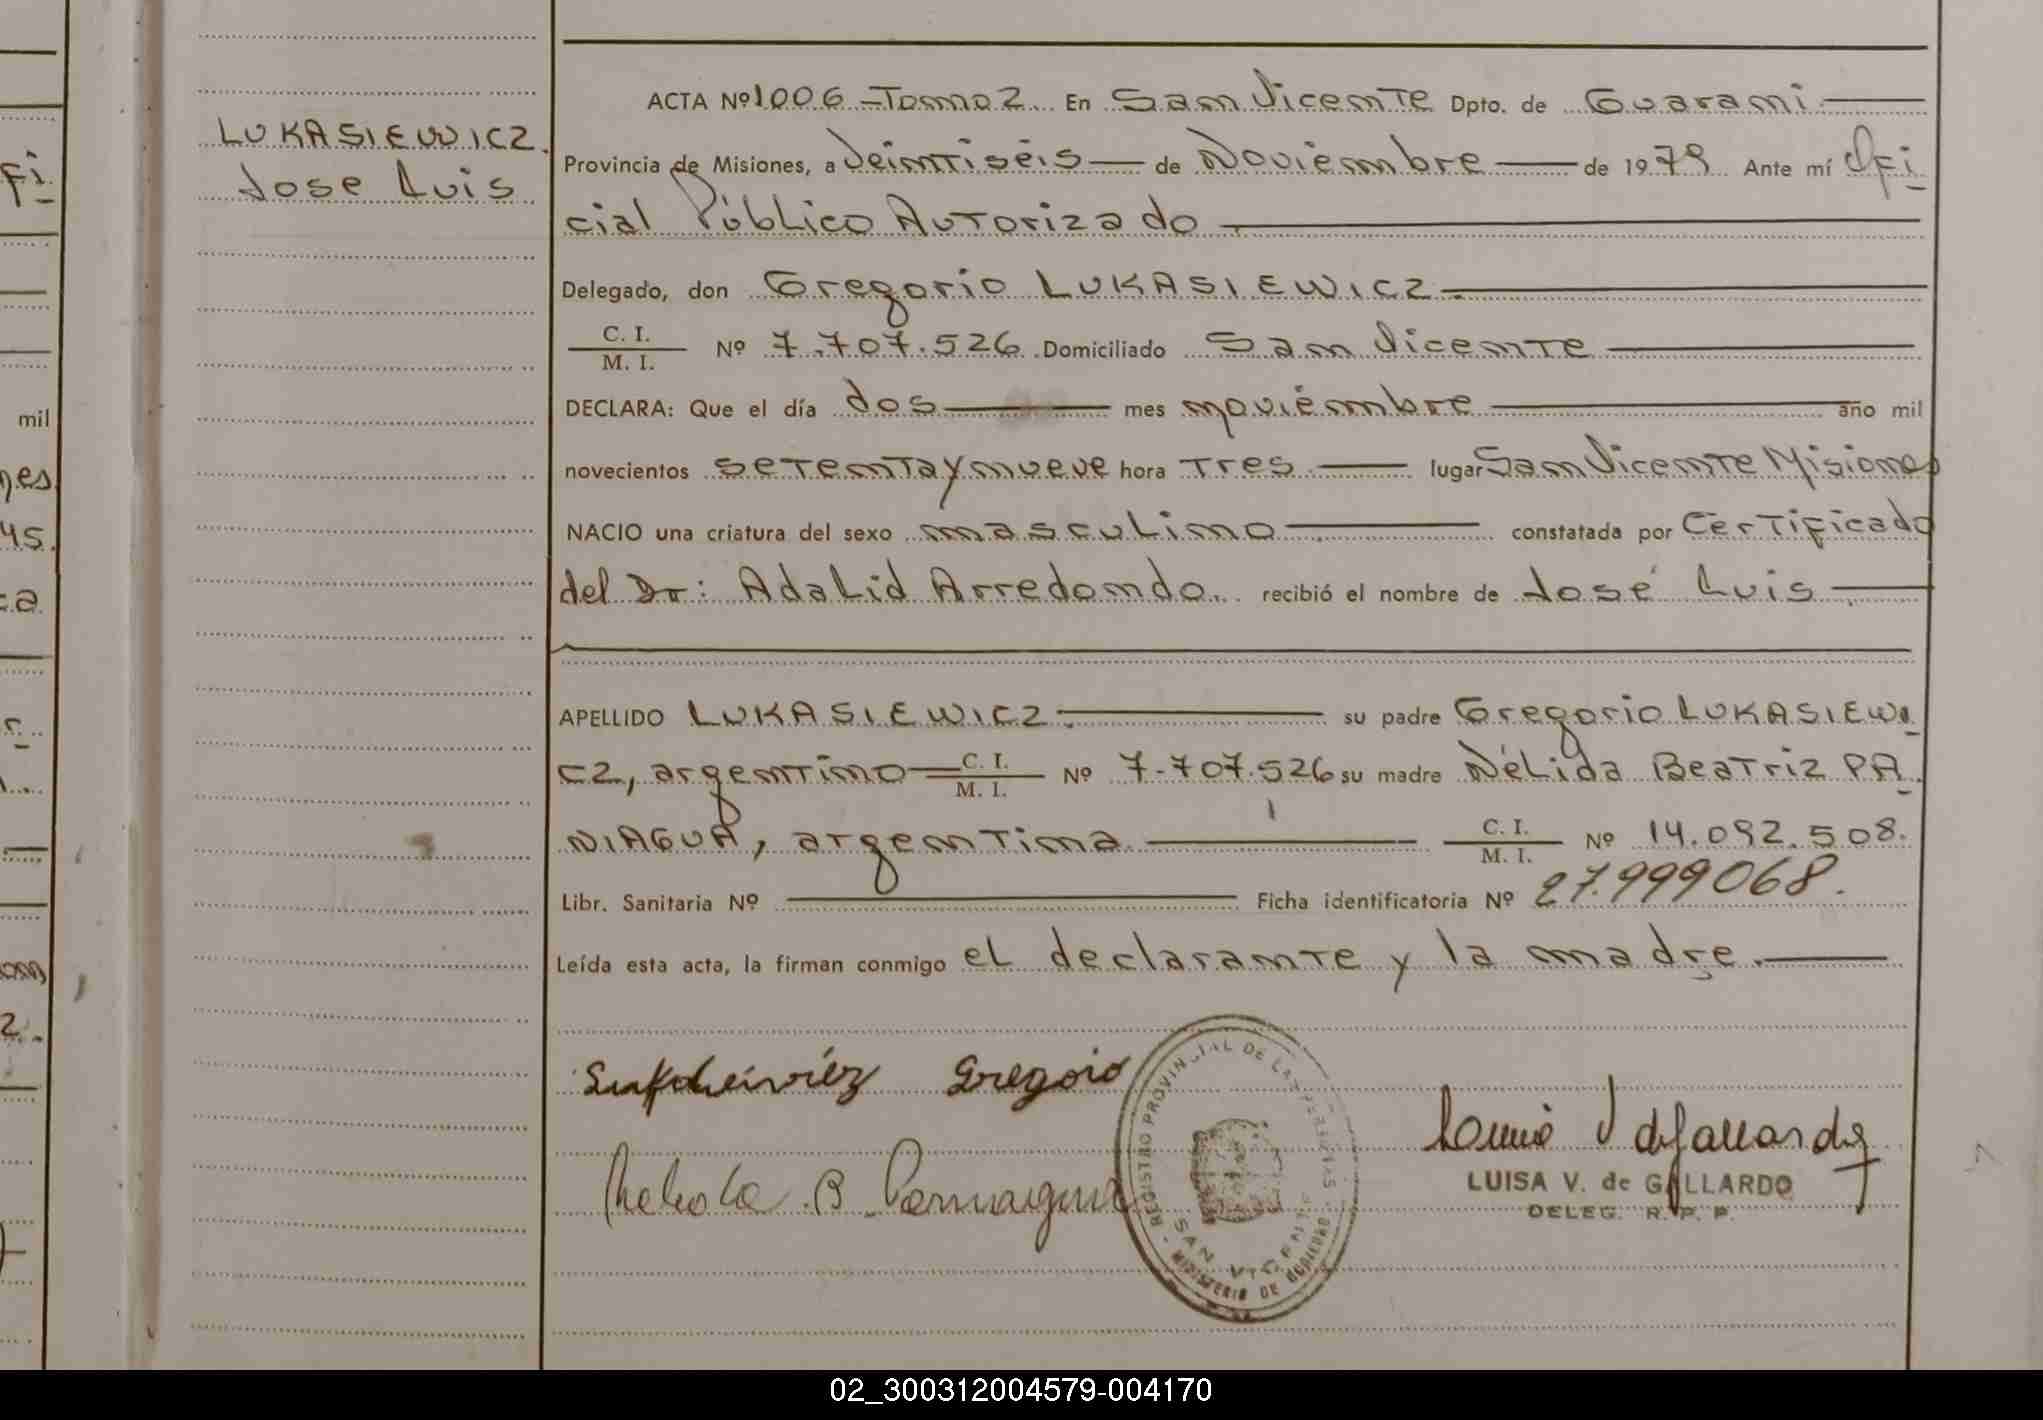 LUKASIEWICZ.
Jose Luis
ACTA Nº 1006 - Tomo 2 En San Vicente Dpto. de Guarani
Provincia de Misiones, a Veintiséis de Noviembre de 1979 Ante mí Ofi
cial Público Autorizado
Delegado, don Gregorio LUKASIEWICZ.
C. I.
M. I. Nº 7.707.526 Domiciliado San Vicente
DECLARA: Que el día dos mes noviembre año mil
novecientos setenta y nueve hora Tres lugar San Vicente Misiones
NACIO una criatura del sexo masculino constatada por Certificado
del Dr: Adalid Arredondo. recibió el nombre de José Luis
APELLIDO LUKASIEWICZ. su padre Gregorio LUKASIEWI
CZ, argentino C. I.
M. I. Nº 7.707.526 su madre Nélida Beatriz PA
NIAGUA, argentina C. I.
M. I. Nº 14.092.508.
Libr. Sanitaria Nº Ficha identificatoria Nº 27.999068.
Leída esta acta, la firman conmigo el declarante y la madre.
Gregorio
REGISTRO PROVINCIAL DE LAS PERSONAS
SAN VICENTE
MINISTERIO DE GOBIERNO
LUISA V. de GALLARDO
DELEG. R. P. P.
mil
nes
45.
ca
2.
02_300312004579-004170